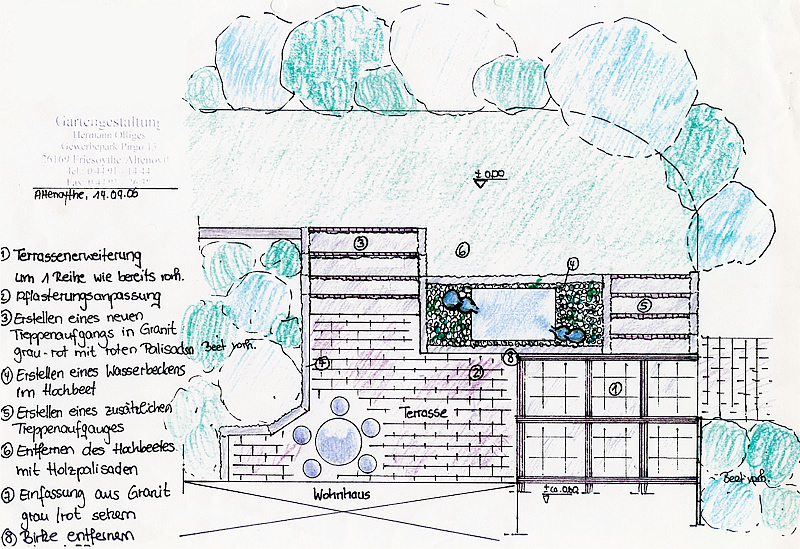 Gartengestaltung
Hermann Oltiges
Gewerbepark Pirgo 13
26169 Friesoythe-Altenoythe
Altenoythe, 14.09.06
± 0,00
① Terrassenerweiterung
um 1 Reihe wie bereits vorh.
② Pflasterungsanpassung
③ Erstellen eines neuen
Treppenaufgangs in Granit
grau-rot mit roten Palisaden
④ Erstellen eines Wasserbeckens
im Hochbeet
⑤ Erstellen eines zusätzlichen
Treppenaufganges
⑥ Entfernen des Hochbeetes
mit Holzpalisaden
⑦ Einfassung aus Granit
grau/rot setzen
⑧ Birke entfernen
③
⑥
④
⑤
Beet vorh.
⑦
⑧
②
①
Terrasse
Beet vorh.
Wohnhaus